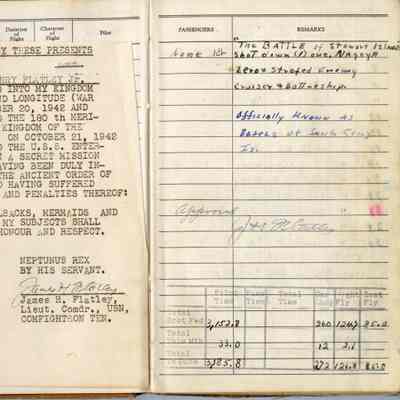 Duration of Flight
Character of Flight
Pilot
PASSENGERS
REMARKS
THESE PRESENTS
FLATLEY JR.
INTO MY KINGDOM
LONGITUDE (WAR
BER 20, 1942 AND
THE 180 th MERI-
KINGDOM OF THE
ON OCTOBER 21, 1942
THE U.S.S. ENTER-
A SECRET MISSION
AVING BEEN DULY IN-
THE ANCIENT ORDER OF
HAVING SUFFERED
AND PENALTIES THEREOF:
LBACKS, MERMAIDS AND
MY SUBJECTS SHALL
HONOUR AND RESPECT.
NEPTUNUS REX
BY HIS SERVANT.
James H Flatley
James H. Flatley,
Lieut. Comdr., USN,
COMFIGHTRON TEN.
The BATTLE of Stewart Island
Shot down (1) one
Zero & Strafed Enemy
Cruiser & Battleship.
Officially Known As
Battle of Santa Cruz
Is.
Approved
J H Flatley
Pilot Time
Pass Time
Total Time
Total
3,152.8
260
85.0
Total
This Mth
33.0
12
2.1
Total
3,185.8
272